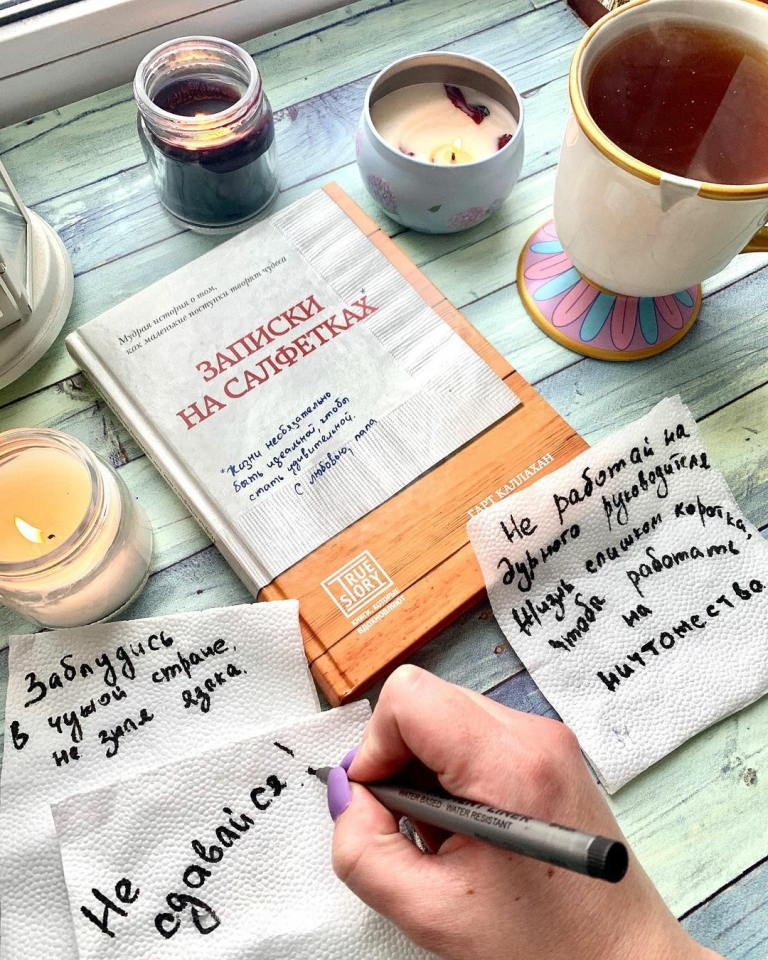 Мудрая история о том,
как маленькие поступки творят чудеса
ЗАПИСКИ
НА САЛФЕТКАХ*
*Жизни необязательно
быть идеальной, чтобы
стать удивительной.
С любовью, папа
ГАРТ КАЛЛАХАН
TRUE
STORY
КНИГИ, КОТОРЫЕ
ВДОХНОВЛЯЮТ
Не работай на
дурного руководителя
Жизнь слишком коротка,
чтобы работать
на
ничтожество.
Заблудись
в чужой стране,
не зная языка.
Не
сдавайся!
WATER BASED · WATER RESISTANT